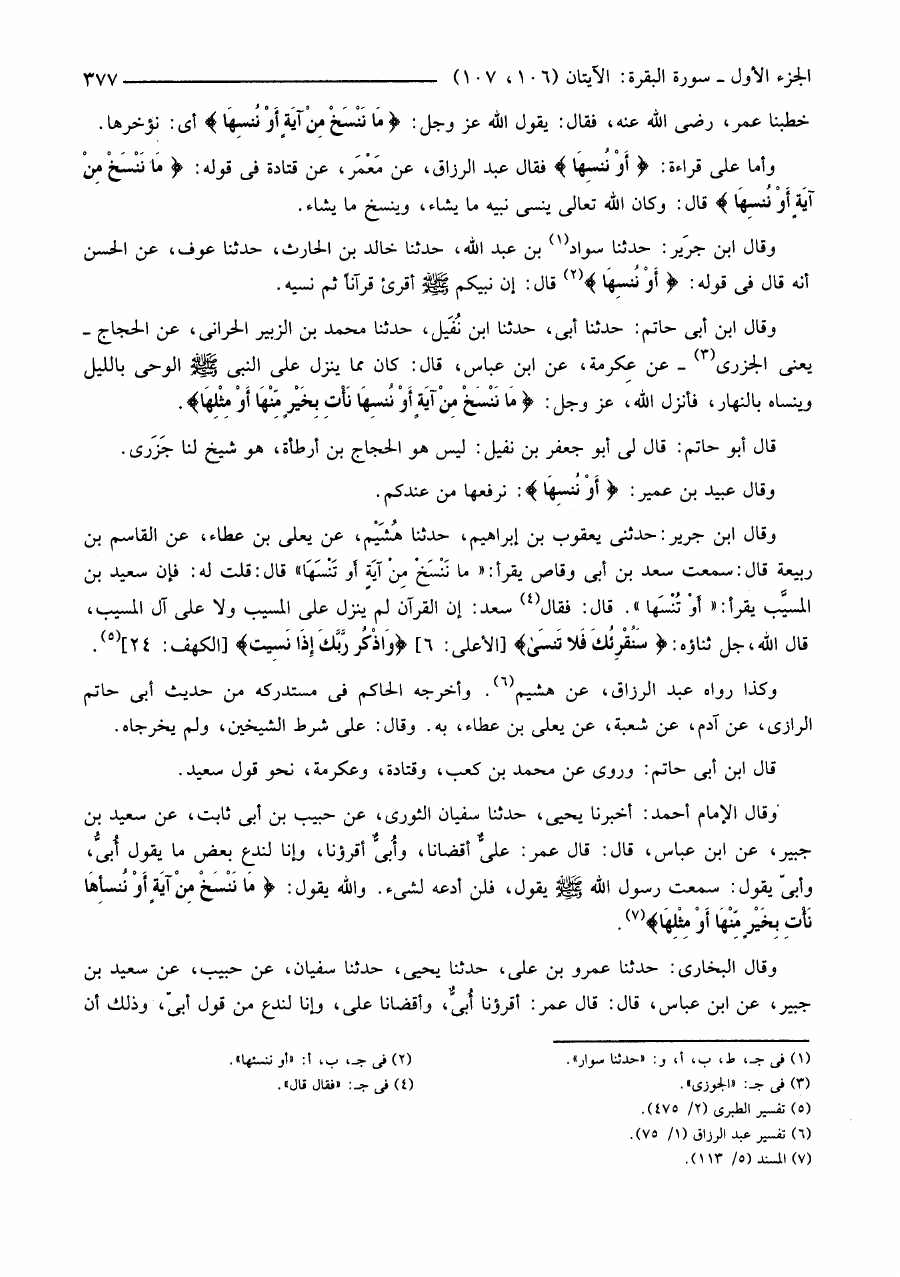 الجزء الأول ـ سورة البقرة: الآيتان (١٠٦، ١٠٧) ٣٧٧
خطبنا عمر، رضى الله عنه، فقال: يقول الله عز وجل: ﴿ مَا نَنْسَخْ مِنْ آيَةٍ أَوْ نُنسِهَا ﴾ أى: نؤخرها.
وأما على قراءة: ﴿ أَوْ نُنسِهَا ﴾ فقال عبد الرزاق، عن مَعْمَر، عن قتادة فى قوله: ﴿ مَا نَنْسَخْ مِنْ
آيَةٍ أَوْ نُنسِهَا ﴾ قال: وكان الله تعالى ينسى نبيه ما يشاء، وينسخ ما يشاء.
وقال ابن جرَير: حدثنا سواد(١) بن عبد الله، حدثنا خالد بن الحارث، حدثنا عوف، عن الحسن
أنه قال فى قوله: ﴿ أَوْ نُنسِهَا ﴾(٢) قال: إن نبيكم ﷺ أقرئ قرآناً ثم نسيه.
وقال ابن أبى حاتم: حدثنا أبى، حدثنا ابن نُفَيل، حدثنا محمد بن الزبير الحرانى، عن الحجاج ـ
يعنى الجزرى(٣) ـ عن عكرمة، عن ابن عباس، قال: كان مما ينزل على النبى ﷺ الوحى بالليل
وينساه بالنهار، فأنزل الله، عز وجل: ﴿ مَا نَنْسَخْ مِنْ آيَةٍ أَوْ نُنسِهَا نَأْتِ بِخَيْرٍ مِّنْهَا أَوْ مِثْلِهَا﴾.
قال أبو حاتم: قال لى أبو جعفر بن نفيل: ليس هو الحجاج بن أرطأة، هو شيخ لنا جَزَرى.
وقال عبيد بن عمير: ﴿ أَوْ نُنسِهَا ﴾: نرفعها من عندكم.
وقال ابن جرير: حدثنى يعقوب بن إبراهيم، حدثنا هُشَيْم، عن يعلى بن عطاء، عن القاسم بن
ربيعة قال: سمعت سعد بن أبى وقاص يقرأ: «ما نَنْسَخْ مِنْ آيَةٍ أو تَنْسَهَا» قال: قلت له: فإن سعيد بن
المسيَّب يقرأ: «أوْ تُنْسَها ». قال: فقال(٤) سعد: إن القرآن لم ينزل على المسيب ولا على آل المسيب،
قال الله، جل ثناؤه: ﴿ سَنُقْرِئُكَ فَلا تَنسَىٰ﴾ [الأعلى: ٦] ﴿وَاذْكُر رَّبَّكَ إِذَا نَسِيت﴾ [الكهف: ٢٤](٥).
وكذا رواه عبد الرزاق، عن هشيم(٦). وأخرجه الحاكم فى مستدركه من حديث أبى حاتم
الرازى، عن آدم، عن شعبة، عن يعلى بن عطاء، به. وقال: على شرط الشيخين، ولم يخرجاه.
قال ابن أبى حاتم: وروى عن محمد بن كعب، وقتادة، وعكرمة، نحو قول سعيد.
وقال الإمام أحمد: أخبرنا يحيى، حدثنا سفيان الثورى، عن حبيب بن أبى ثابت، عن سعيد بن
جبير، عن ابن عباس، قال: قال عمر: علىٌّ أقضانا، وأُبىٌّ أقرؤنا، وإنا لندع بعض ما يقول أُبىُّ،
وأبىّ يقول: سمعت رسول الله ﷺ يقول، فلن أدعه لشىء. والله يقول: ﴿ مَا نَنْسَخْ مِنْ آيَةٍ أَوْ نُنسأهَا
نَأْتِ بِخَيْرٍ مِّنْهَا أَوْ مِثْلِهَا﴾(٧).
وقال البخارى: حدثنا عمرو بن على، حدثنا يحيى، حدثنا سفيان، عن حبيب، عن سعيد بن
جبير، عن ابن عباس، قال: قال عمر: أقرؤنا أُبىٌّ، وأقضانا على، وإنا لندع من قول أبىّ، وذلك أن
(١) فى جـ، ط، ب، أ، و: «حدثنا سوار». (٢) فى جـ، ب، أ: «أو ننسئها».
(٣) فى جـ: «الجوزى». (٤) فى جـ: «فقال قال».
(٥) تفسير الطبرى (٢/ ٤٧٥).
(٦) تفسير عبد الرزاق (١/ ٧٥).
(٧) المسند (٥/ ١١٣).